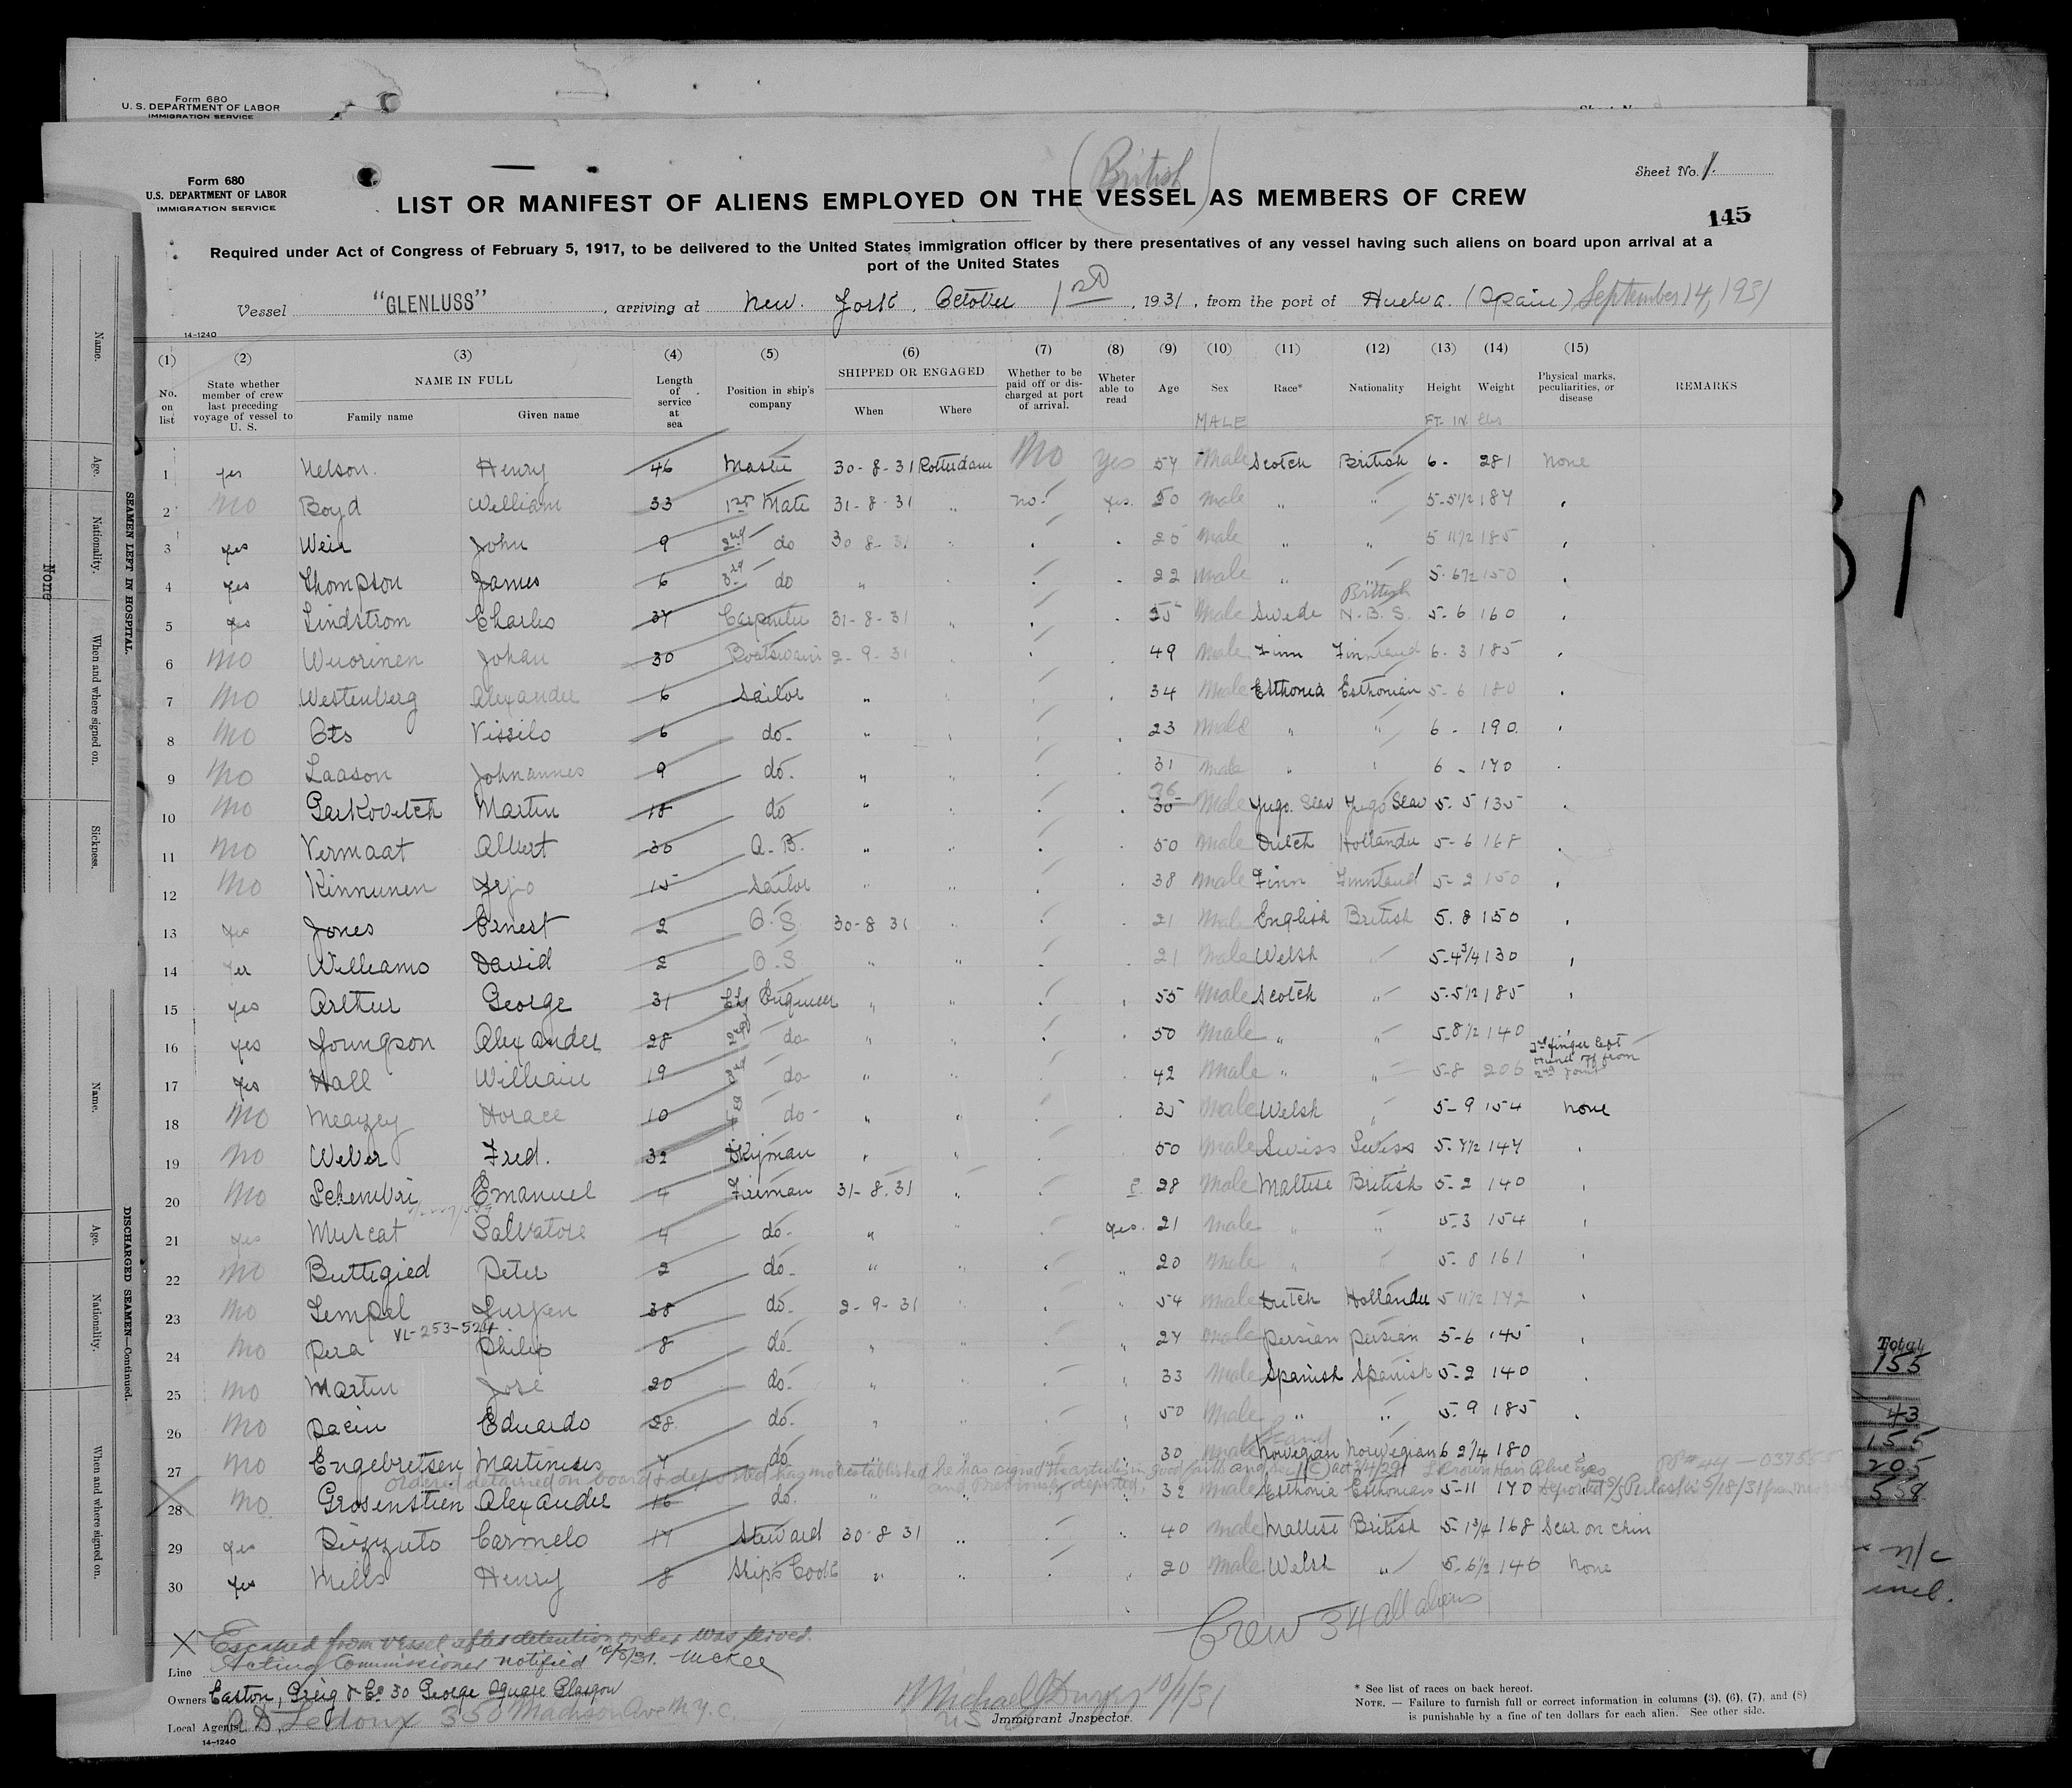 Form 680
U. S. DEPARTMENT OF LABOR
IMMIGRATION SERVICE
Form 680
U. S. DEPARTMENT OF LABOR
IMMIGRATION SERVICE
(British)
Sheet No. 1.
LIST OR MANIFEST OF ALIENS EMPLOYED ON THE VESSEL AS MEMBERS OF CREW
145
Required under Act of Congress of February 5, 1917, to be delivered to the United States immigration officer by there presentatives of any vessel having such aliens on board upon arrival at a
port of the United States
Vessel "GLENLUSS", arriving at New York, October 1st, 1931, from the port of Huelva. (Spain) September 14, 1931
14-1240
(1) No. on list
(2) State whether member of crew last preceding voyage of vessel to U. S.
(3) NAME IN FULL Family name Given name
(4) Length of service at sea
(5) Position in ship's company
(6) SHIPPED OR ENGAGED When Where
(7) Whether to be paid off or discharged at port of arrival.
(8) Wheter able to read
(9) Age
(10) Sex MALE
(11) Race*
(12) Nationality
(13) Height FT. IN
(14) Weight lbs
(15) Physical marks, peculiarities, or disease
REMARKS
1 yes Nelson. Henry 46 Master 30-8-31 Rotterdam No Yes 57 Male Scotch British 6- 281 None
2 No Boyd William 33 1st Mate 31-8-31 " no. yes. 50 Male " " 5-5 1/2 187 "
3 yes Weir John 9 2nd do 30 8-31 " 25 Male " " 5 11 1/2 185 "
4 yes Thompson James 6 3rd do " 22 Male " " 5-6 1/2 150 "
5 yes Lindstrom Charles 37 Carpenter 31-8-31 " 55 Male Swede British N.B.S. 5-6 160 "
6 No Wuorinen Johan 30 Boatswain 2-9-31 " 49 Male Finn Finnland 6-3 185 "
7 No Westenberg Alexander 6 Sailor " 34 Male Esthonia Esthonian 5-6 180 "
8 No Ots Vissilo 6 do- " " 23 Male " " 6- 190. "
9 No Laason Johnannes 9 do. " " 31 Male " " 6- 170
10 No Garkovitch Martin 18 do " 36 Male Yugo. Slav Yugo Slav 5-5 135 "
11 No Vermaat Albert 36 A.B. " " 50 Male Dutch Hollander 5-6 168 "
12 No Kinnunen Yrjo 15 Sailor " " 38 Male Finn Finnland 5-2 150 "
13 yes Jones Ernest 2 O.S. 30-8 31 " 21 Male English British 5.8 150 "
14 yes Williams David 2 O.S " " 21 Male Welsh " 5-4 3/4 130 "
15 yes Arthur George 31 Ch Engineer " " 55 Male Scotch " 5-5 1/2 185 "
16 yes Youngson Alexander 28 2nd do- " " 50 Male " " 5-8 1/2 140 "
17 yes Hall William 19 3rd do- " " 42 Male " " 5-8 206 finger left hand off from 2nd joint
18 No Meazey Horace 10 4th do- " " 35 Male Welsh " 5-9 154 None
19 No Weber Fred. 32 Dkyman " " 50 Male Swiss Swiss 5-7 1/2 147 "
20 No Schembri Emanuel 4 Fireman 31-8.31 " 28 Male Maltese British 5-2 140 "
21 yes Muscat Salvatore 4 do- " " yes. 21 Male " " 5-3 154 "
22 No Buttigied Peter 2 do- " " 20 Male " " 5-8 161 "
23 No Tempel Jurjen 38 do- 2-9-31 " 54 Male Dutch Hollander 5 11 1/2 172 "
VL-253-524
24 No Pera Philip 8 do- " 27 Male Persian Persian 5-6 145 "
25 No Martin Jose 20 do- " 33 Male Spanish Spanish 5-2 140 "
26 No Dacin Eduardo 28 do- " " 50 Male " " 5.9 185 "
27 No Engebretsen Martinius 7 do 30 Male Norwegian Norwegian 6 2 1/4 180
Ordered detained on board & deported has not established he has signed the articles in good faith and
and Previously deported.
28 No. Grosenstien Alexander 16 do. " " 32 Male Esthonia Esthonians 5-11 170 Deported S/S Pulaski 9/18/31 from
29 yes Pizzuto Carmelo 17 Steward 30-8 31 " 40 Male Maltese British 5-1 3/4 168 Scar on chin
30 yes Mills Henry 8 Ship's Cook " " 20 Male Welsh " 5-6 1/2 146 None
Crew 34 all aliens
X Escaped from vessel after detention order was served.
Acting Commissioner notified 10/5/31. McKee
Line
Owners Easton, Greig & Co 30 George Square Glasgow
Local Agents A.D. Ledoux 350 Madison Ave N.Y.C.
14-1240
10/1/31
Immigrant Inspector.
* See list of races on back hereof.
NOTE. — Failure to furnish full or correct information in columns (3), (6), (7), and (8)
is punishable by a fine of ten dollars for each alien. See other side.
SEAMEN LEFT IN HOSPITAL.
Name.
Age.
Nationality.
When and where signed on.
Sickness.
None
DISCHARGED SEAMEN—Continued.
Name.
Age.
Nationality.
When and where signed on.
Total
155
43
155
205
558